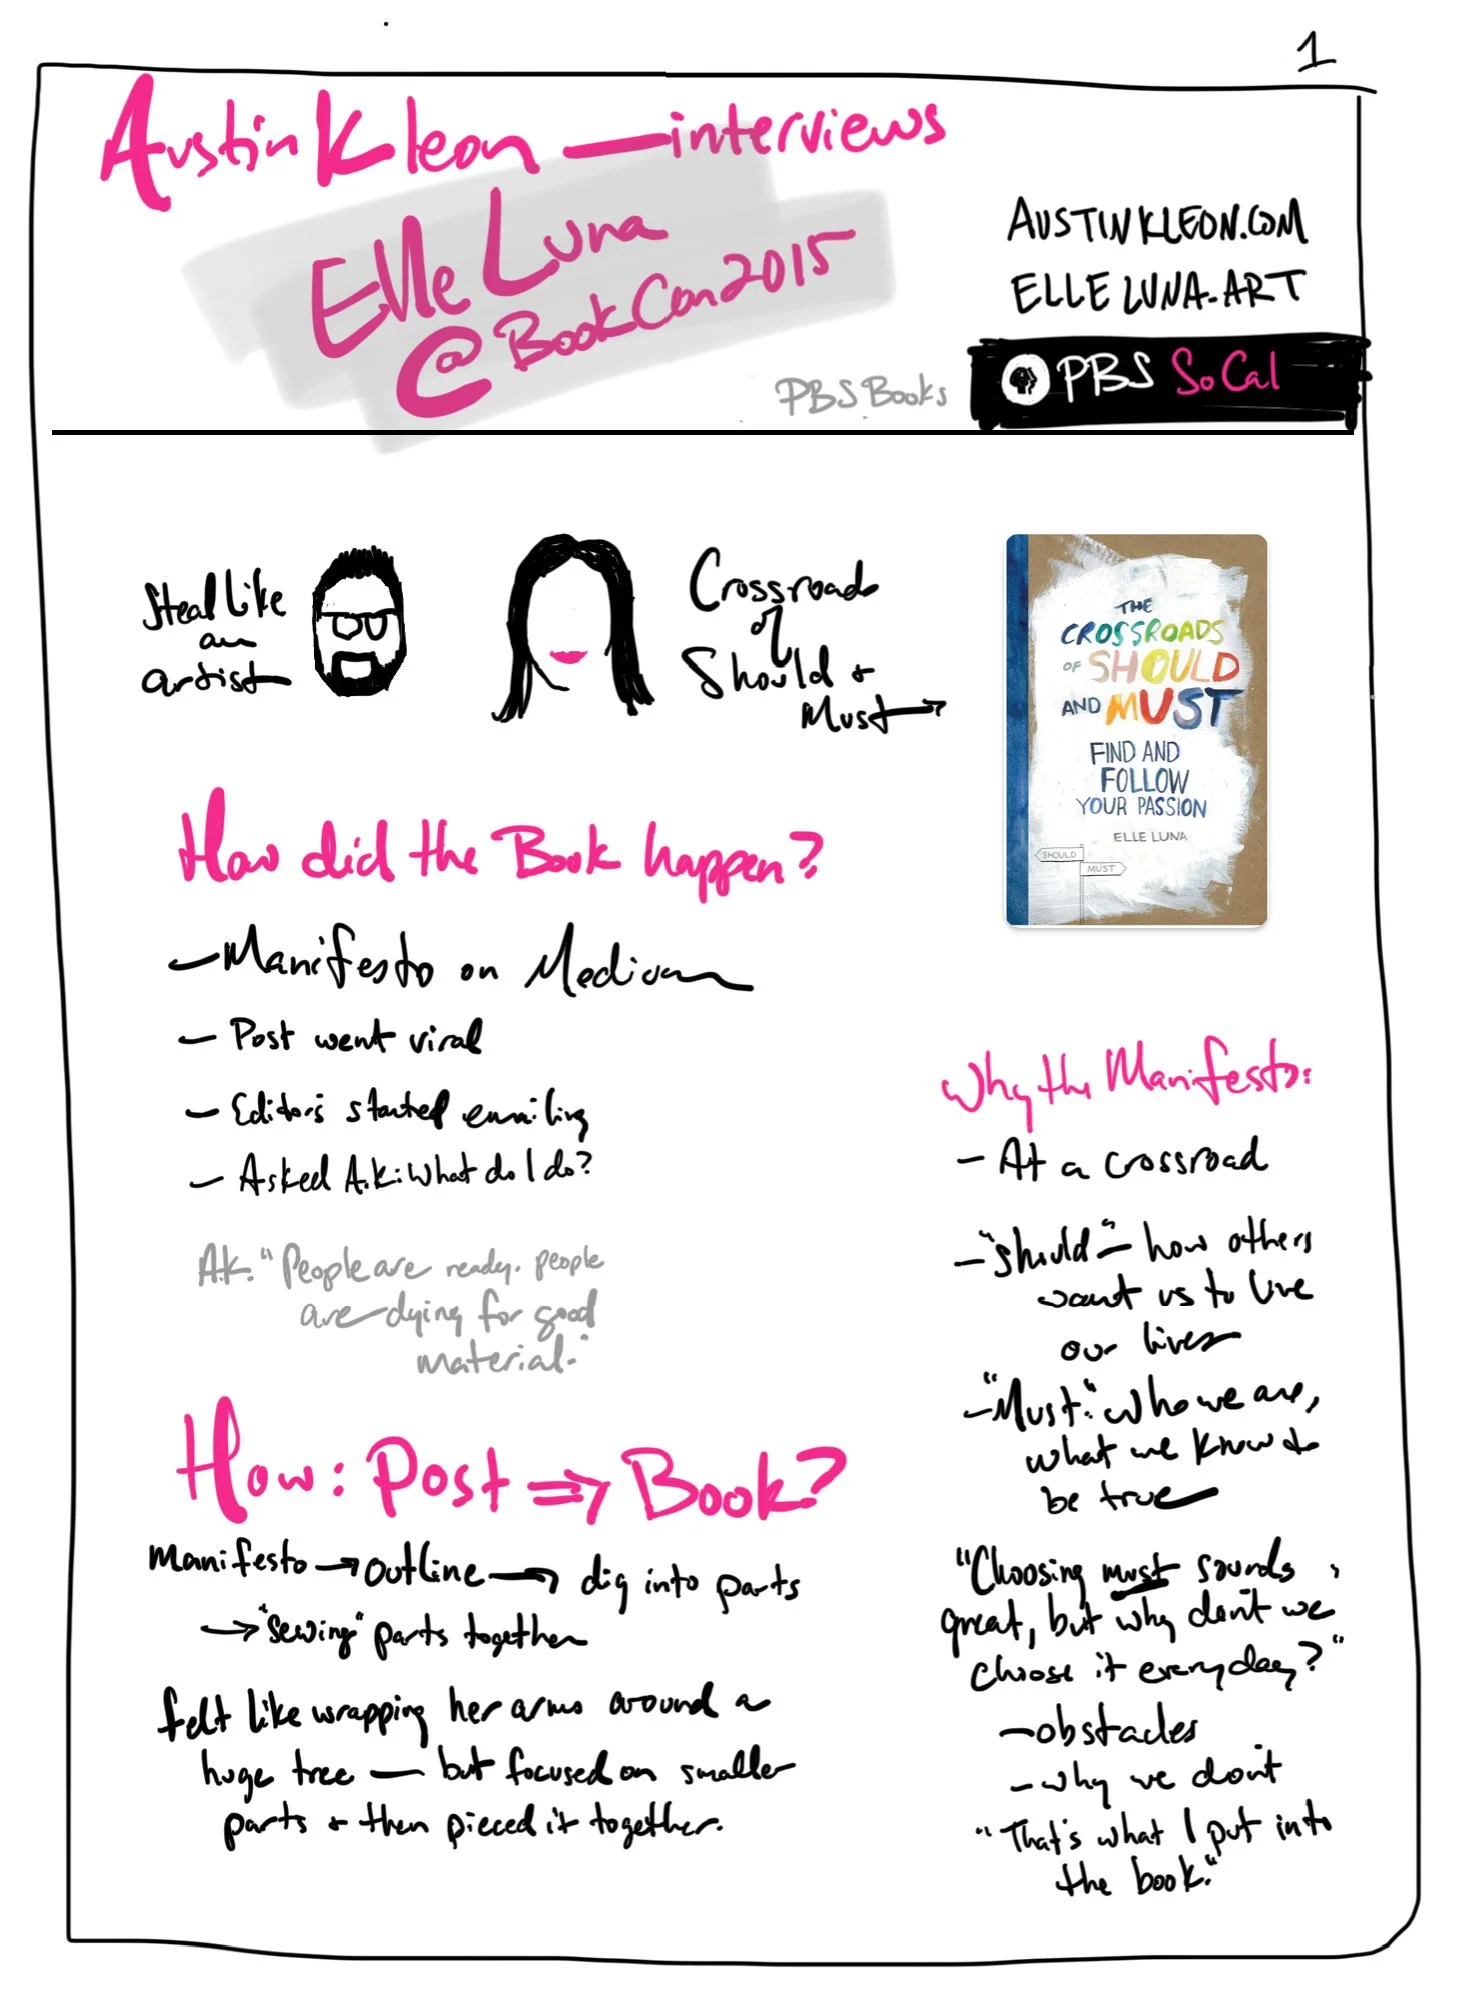 1
Austin Kleon — interviews
Elle Luna
@ BookCon 2015
AUSTINKLEON.COM
ELLELUNA.ART
PBS Books
PBS SoCal
Steal Like
an
artist
Crossroads
of
Should +
Must →
THE
CROSSROADS
OF SHOULD
AND MUST
FIND AND
FOLLOW
YOUR PASSION
ELLE LUNA
SHOULD
MUST
How did the Book happen?
— Manifesto on Medium
— Post went viral
— Editors started emailing
— Asked A.K: What do I do?
A.K. "People are ready. people
are dying for good
material."
How: Post ⇒ Book?
Manifesto → outline → dig into parts
→ "Sewing" parts together
felt like wrapping her arms around a
huge tree — but focused on smaller
parts + then pieced it together.
Why the Manifesto:
— At a crossroad
— "Should" — how others
want us to live
our lives
— "Must:" Who we are,
what we know to
be true
"Choosing must sounds
great, but why don't we
choose it everyday?"
— obstacles
— why we don't
"That's what I put into
the book."